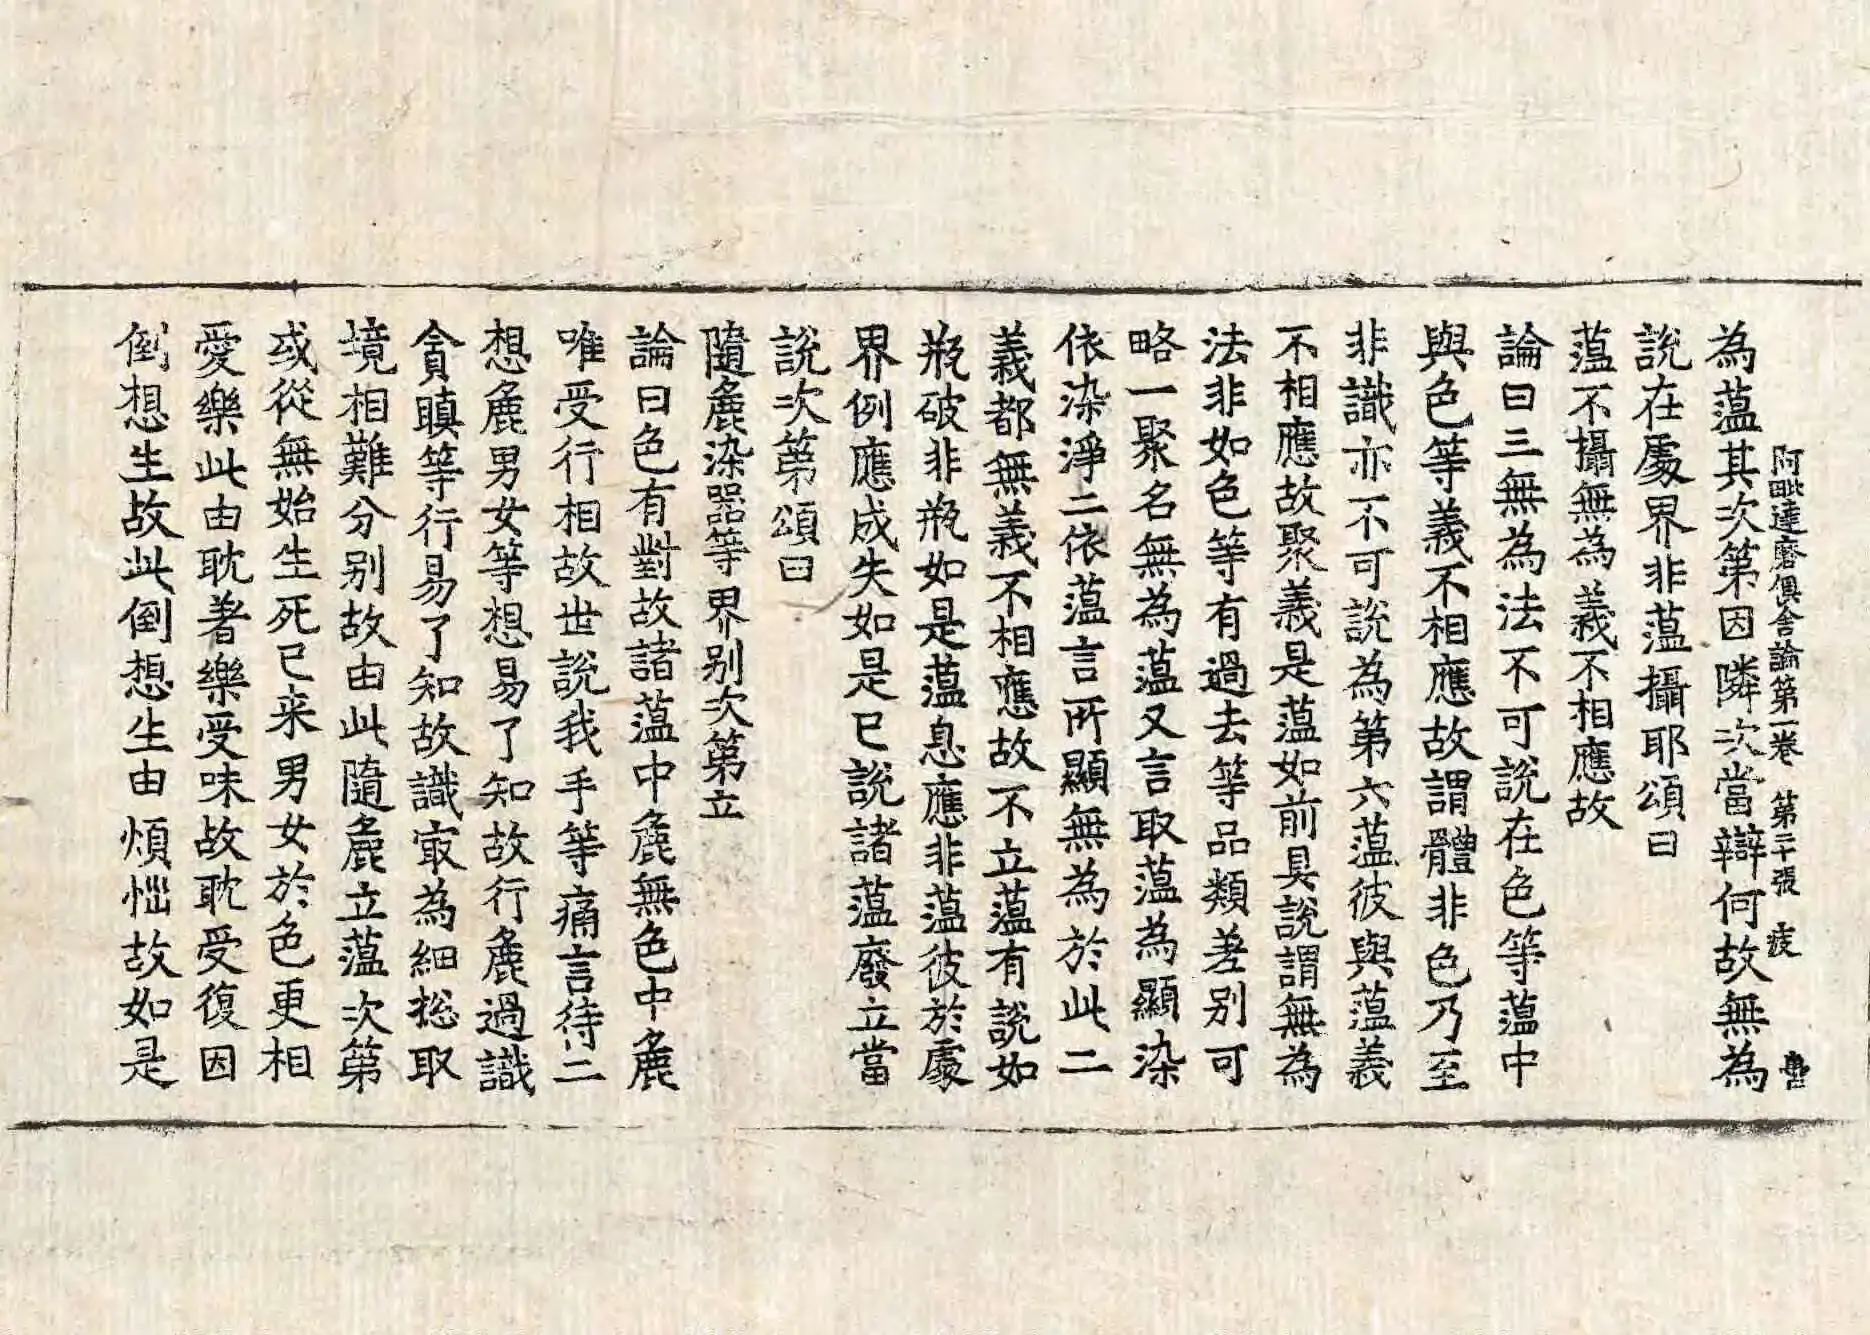 阿毗達磨俱舍論第一卷 第二十張 疲
為蘊其次第因隣次當辯何故無為
說在處界非蘊攝耶頌曰
蘊不攝無為義不相應故
論曰三無為法不可說在色等蘊中
與色等義不相應故謂體非色乃至
非識亦不可說為第六蘊彼與蘊義
不相應故聚義是蘊如前具說謂無為
法非如色等有過去等品類差別可
略一聚名無為蘊又言取蘊為顯染
依染淨二依蘊言所顯無為於此二
義都無義不相應故不立蘊有說如
瓶破非瓶如是蘊息應非蘊彼於處
界例應成失如是已說諸蘊廢立當
說次第頌曰
隨麁染器等 界別次第立
論曰色有對故諸蘊中麁無色中麁
唯受行相故世說我手等痛言待二
想麁男女等想易了知故行麁過識
貪瞋等行易了知故識㝡為細揔取
境相難分別故由此隨麁立蘊次第
或從無始生死已来男女於色更相
愛樂此由耽著樂受味故耽受復因
倒想生故此倒想生由煩惱故如是